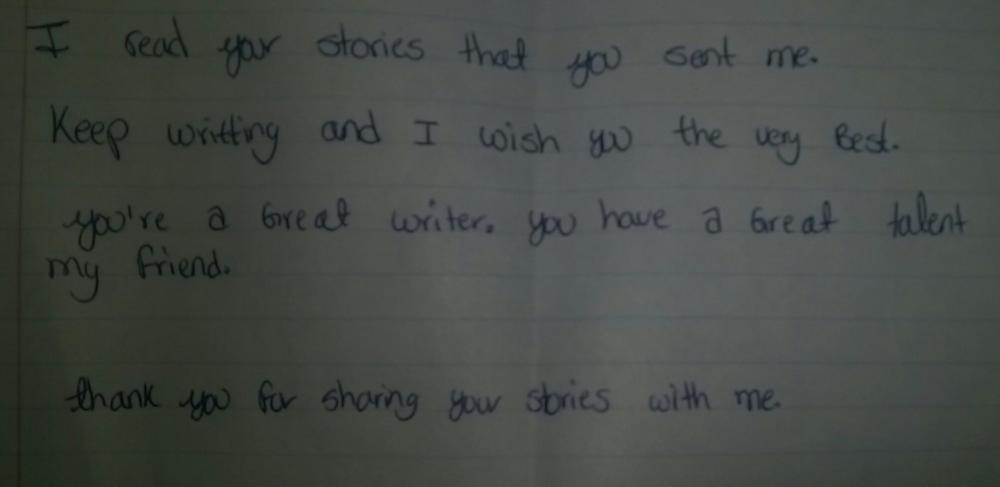 I read your stories that you sent me.
Keep writting and I wish you the very Best.
you're a Great writer. you have a Great talent
my friend.
thank you for sharing your stories with me.